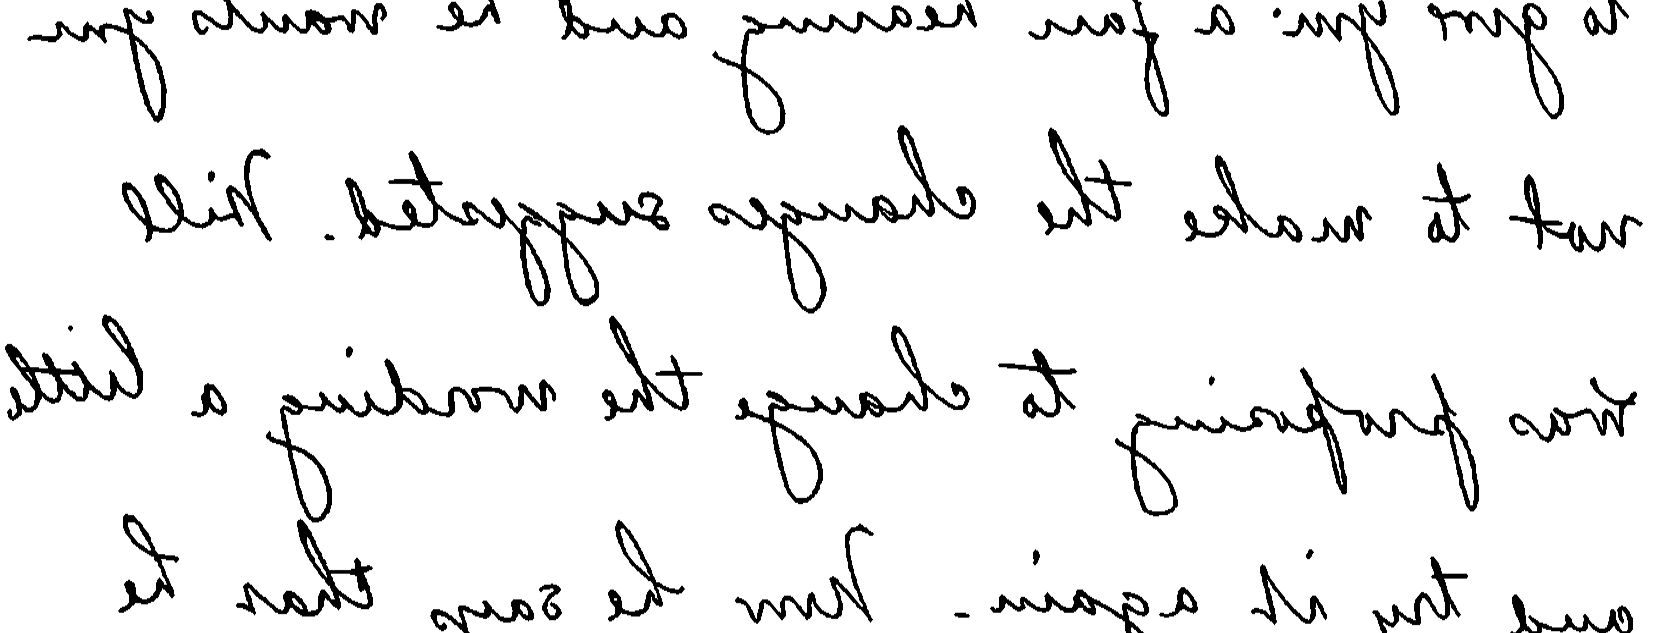 to give you a fair hearing and he wants you
not to make the changes suggested. Will
was proposing to change the wording a little
and try it again. Now he says that he